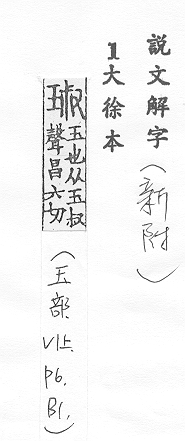 說文解字（新附）
1大徐本
琡 玉也从玉叔
聲昌六切
（玉部、V1上、P6、B1、）